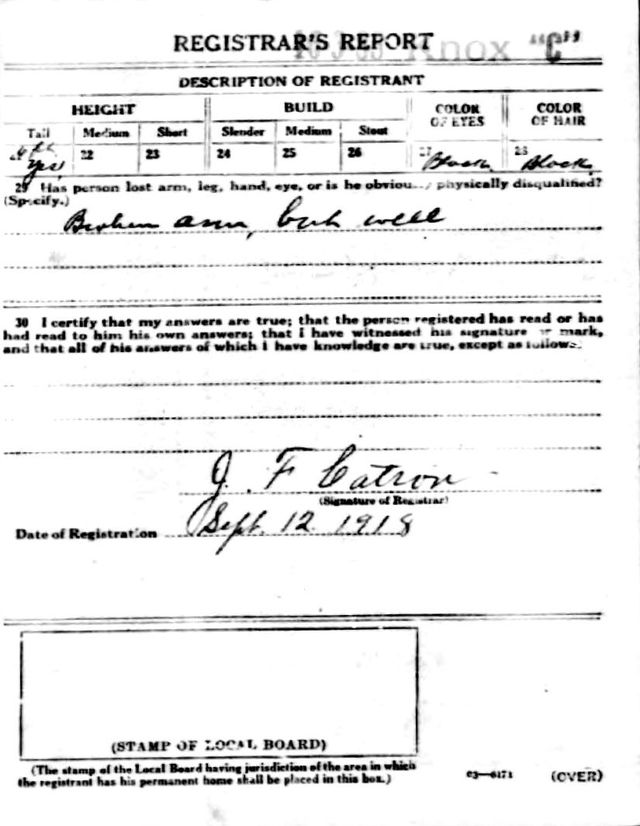 REGISTRAR'S REPORT Knox "C"
DESCRIPTION OF REGISTRANT
HEIGHT BUILD COLOR OF EYES COLOR OF HAIR
Tall Medium Short Slender Medium Stout
Yes 22 23 24 25 26 27 Black 28 Black
29 Has person lost arm, leg, hand, eye, or is he obviously physically disqualified?
(Specify.)
Broken arm, but well
30 I certify that my answers are true; that the person registered has read or has
had read to him his own answers; that I have witnessed his signature or mark,
and that all of his answers of which I have knowledge are true, except as follows:
J. F Catron
(Signature of Registrar)
Date of Registration Sept. 12 1918
(STAMP OF LOCAL BOARD)
(The stamp of the Local Board having jurisdiction of the area in which
the registrant has his permanent home shall be placed in this box.)
03—6171 (OVER)